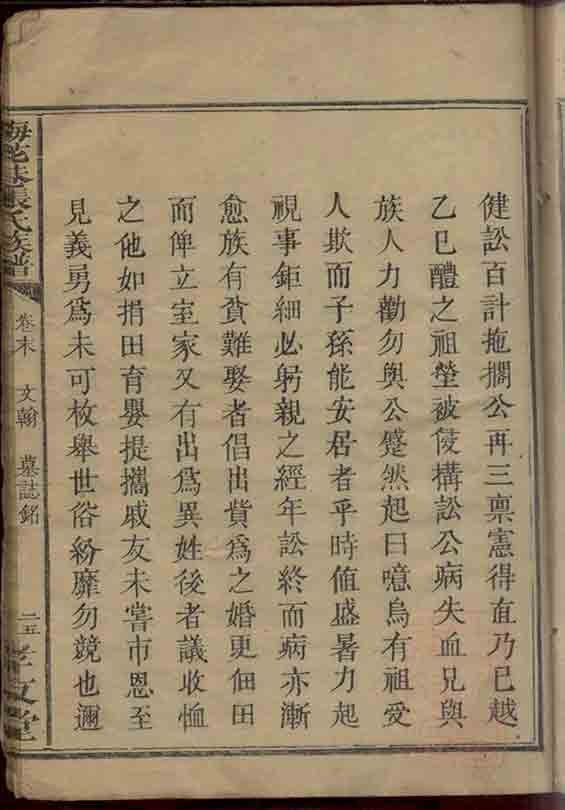 健訟百計拖擱公再三禀憲得直乃已越
乙巳醴之祖塋被侵搆訟公病失血兄與
族人力勸勿與公蹙然起曰噫烏有祖受
人欺而子孫能安居者乎時值盛暑力起
視事鉅細必躬親之經年訟終而病亦漸
愈族有貧難娶者倡出貲為之婚更佃田
而俾立室家又有出為異姓後者議收恤
之他如捐田育嬰提攜戚友未嘗市恩至
見義勇為未可枚舉世俗紛靡勿競也邇
張氏族譜
卷末
文翰
墓誌銘
二五
孝友堂